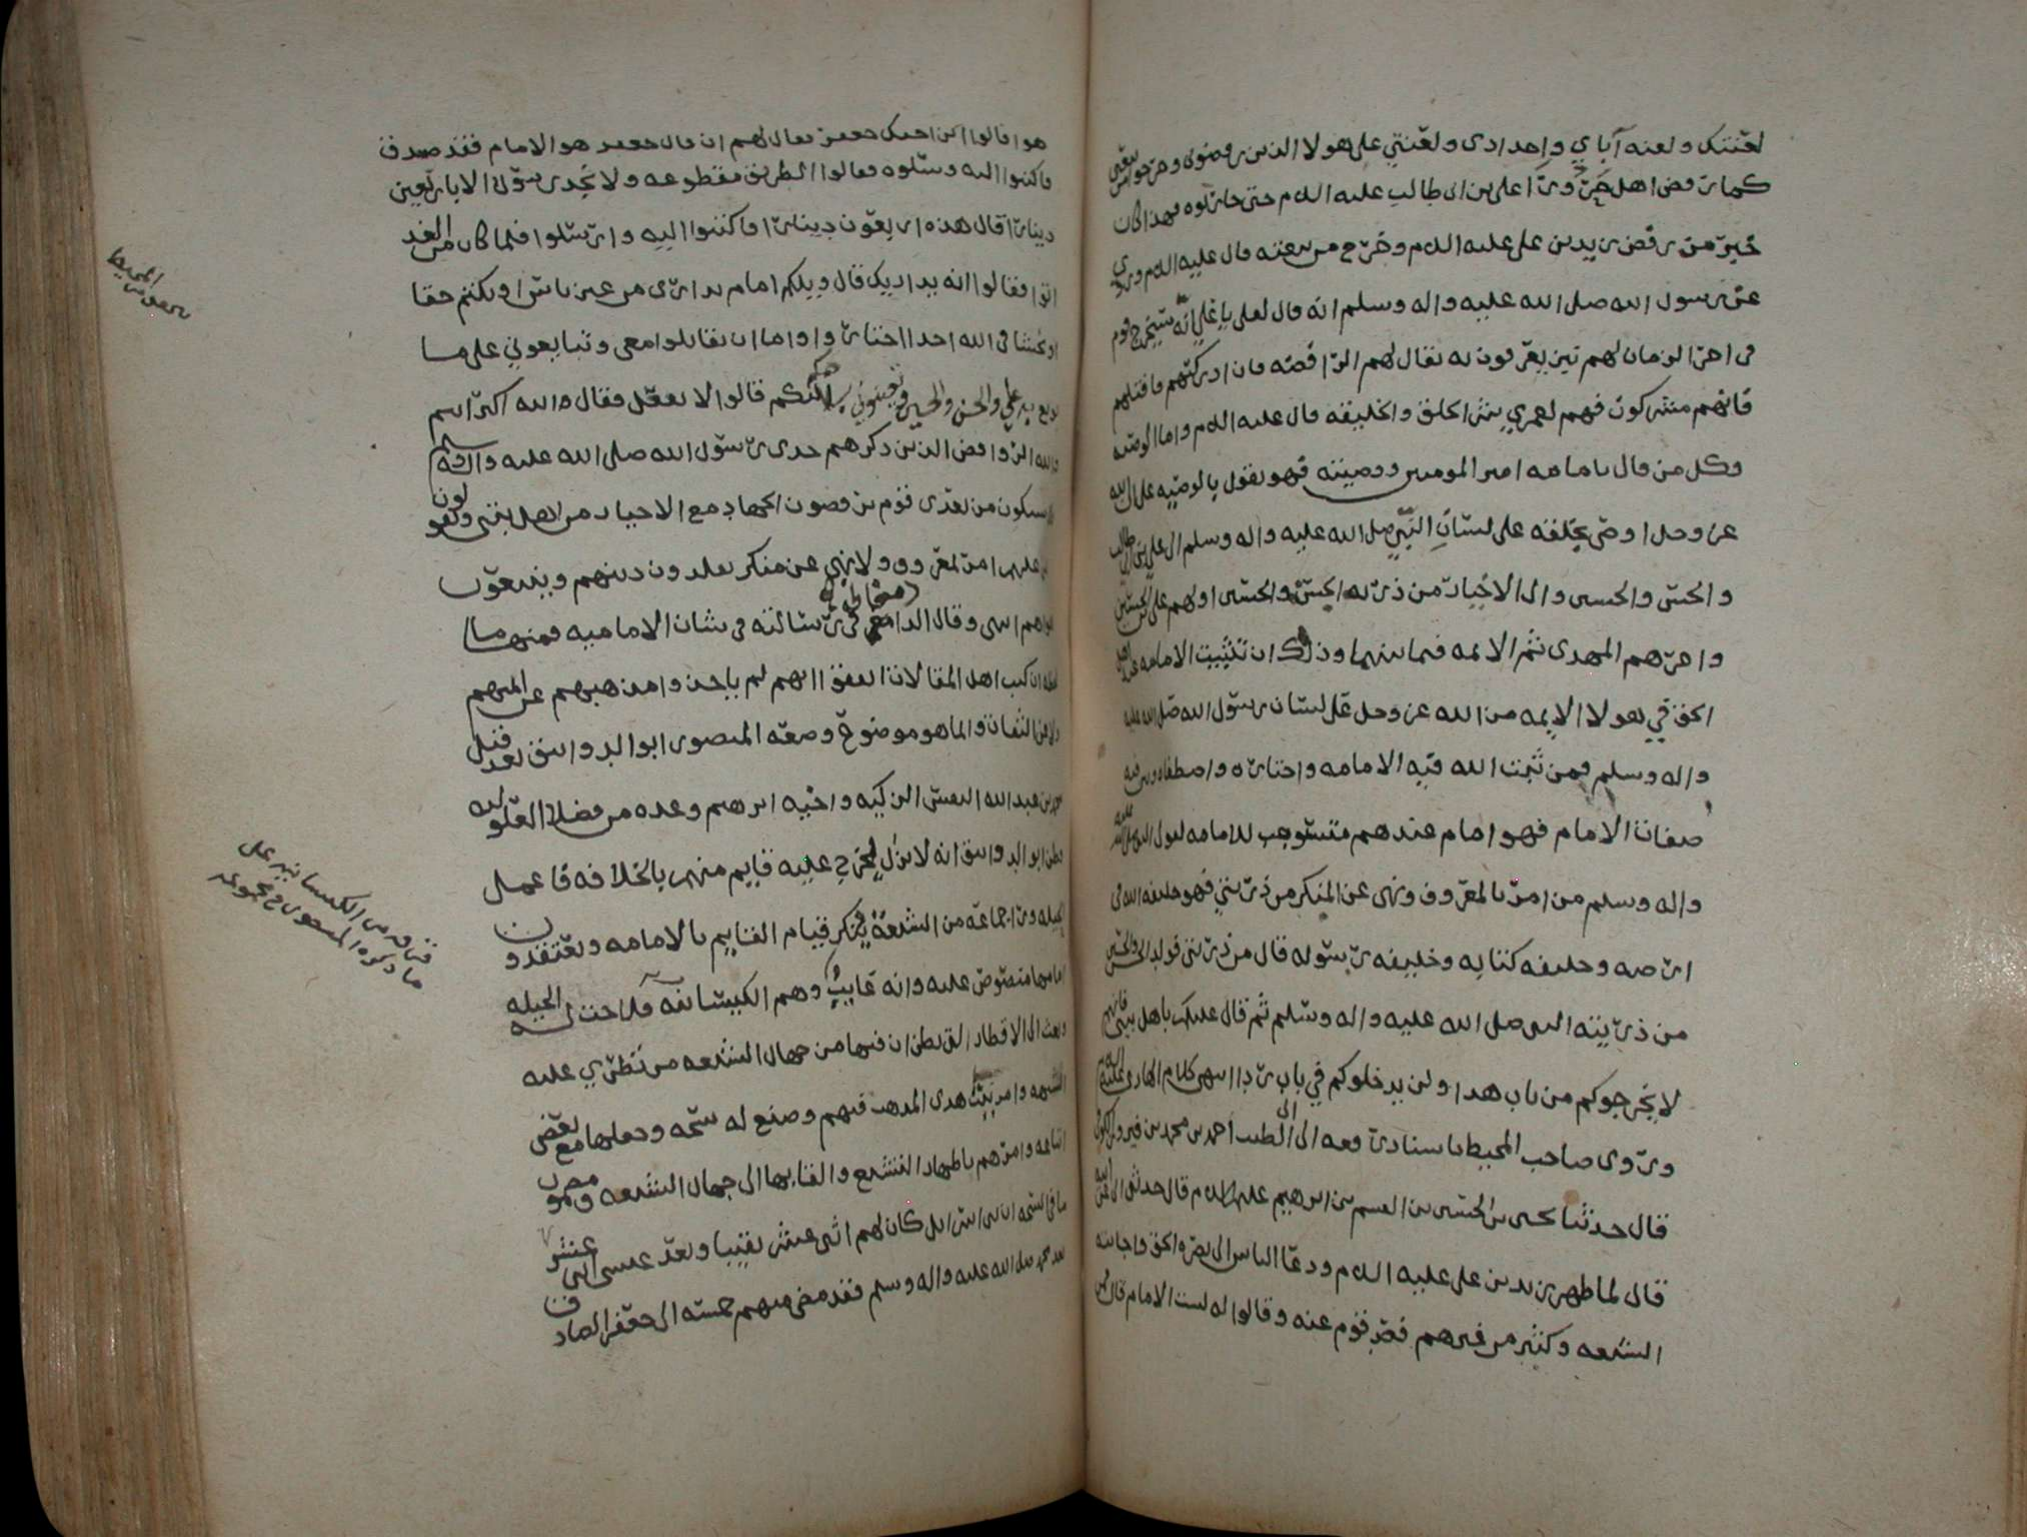 لعنتك ولعنه آباي واجدادى ولعنتي على هولا الذين رفضوني وخرجوا من بيعتي
كما رفض اهل حرورآ على بن ابى طالب عليه السلم حتى حاربوه فهذا كان
خبر من رفض زيد بن على عليه السلم وخرج من بيعته قال عليه السلم وروي
عن رسول الله صلى الله عليه واله وسلم انه قال لعلى يا علي انه سيخرج قوم
فى اخر الزمان لهم نبز يعرفون به يقال لهم الرافضه فان ادركتهم فاقتلهم
فانهم مشركون فهم لعمري شر الخلق والخليقه قال عليه السلم واما الوصيه
وكل من قال بامامه امير المومنين ووصيته فهو يقول بالوصيه على ان الله
عز وجل اوصى بخلقه على لسان النبي صلى الله عليه واله وسلم الى علي بن ابى طالب
والحسن والحسين والى الاخيار من ذريه الحسن والحسين اولهم على بن الحسين
واخرهم المهدى ثم الايمه فيما بينهما وذلك ان تثبيت الامامه عند اهل
الحق في هولا الايمه من الله عز وجل على لسان رسول الله صلى الله عليه
واله وسلم فمن ثبت الله فيه الامامه واختاره واصطفاه وبين فيه
صفات الامام فهو امام عندهم مستوجب للامامه لقول النبى صلى الله عليه
واله وسلم من امر بالمعروف ونهى عن المنكر من ذريتي فهو خليفه الله فى
ارضه وخليفه كتابه وخليفه رسوله قال من ذريتى فولد الحسن والحسين
من ذريته النبى صلى الله عليه واله وسلم ثم قال عليكم باهل بيتي فانهم
لا يخرجوكم من باب هدا ولن يدخلوكم في باب ردا انتهى كلام الهادى عليه السلم
وروى صاحب المحيط باسناد رفعه الى ابى الطيب احمد بن محمد بن فيروز الكوفى
قال حدثنا يحيى بن الحسين بن القسم بن ابرهيم عليهم السلم قال حدثنى ابى عن ابيه
قال لما ظهر زيد بن على عليه السلم ودعا الناس الى نصره الحق واجابته
الشيعه وكثير من غيرهم فصد قوم عنه وقالوا له لست الامام قال فمن
هو قالوا ابن اخيك جعفر فقال لهم ان قال جعفر هو الامام فقد صدق
فاكتبوا اليه وسلوه فقالوا الطريق مقطوعه ولا نجد رسولا الا باربعين
دينارا قال هذه اربعون دينارا فاكتبوا اليه وارسلوا فلما كان من الغد
اتوا فقالوا انه يداريك قال ويلكم امام يدارى من غير باس او يكتم حقا
او يخشا فى الله احدا اختاروا اما ان تقاتلوا معى وتبايعوني على ما
بويع به علي والحسن والحسين وتعينوني بسلاحكم قالوا لا نفعل فقال الله اكبر انتم
والله الروافض الذين ذكرهم جدى رسول الله صلى الله عليه واله قال
سيكون من بعدى قوم يرفضون الجهاد مع الاخيار من اهل بيتى ويقولون
ليس عليهم امر بمعروف ولا نهي عن منكر يقلدون دينهم ويتبعون
اهواهم انتهى وقال الدامغاني فى رسالته فى شان الاماميه فمنها ما
لفظه ان كتب اهل المقالات اتفقوا انهم لم ياخذوا مذهبهم عن ايمتهم
ولا عن الثقات وانما هو موضوع وضعه المنصور ابو الدوانيق بعد قتل
محمد بن عبد الله النفس الزكيه واخيه ابرهيم وعده من فضلا العلويه
فظن ابو الدوانيق انه لا يزال يخرج عليه قايم منهم بالخلافه فاعمل
الحيله وراى جماعه من الشيعه ينكر قيام القايم بالامامه ويعتقدون
امامها منصوص عليه وانه غايب وهم الكيسانيه فلاحت له الحيله
وبعث الى الاقطار التى يظن ان فيها من جهال الشيعه من تطرى عليه
الشبهه وامر ببث هذى المذهب فيهم وصنع له نسخه وجعلها مع بعض
اتباعه وامرهم باظهار التشيع والقايها الى جهال الشيعه ومضمون
ما فى النسخه ان بنى اسرايل كان لهم اثنى عشر نقيبا وبعد عيسى اثنى عشر
بعد محمد صلى الله عليه واله وسلم فقد مضى منهم خمسه الى جعفر الصادق
المحيط
فرقه من الكيسانيه على
ما ذكره المنصور في مجموعه